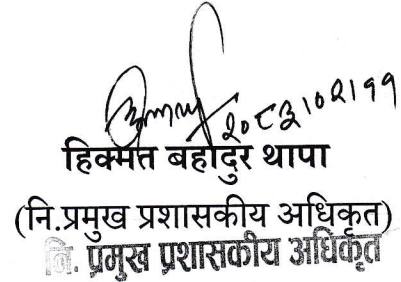 २०८३।०२।११
हिक्मत बहादुर थापा
(नि.प्रमुख प्रशासकीय अधिकृत)
नि. प्रमुख प्रशासकीय अधिकृत